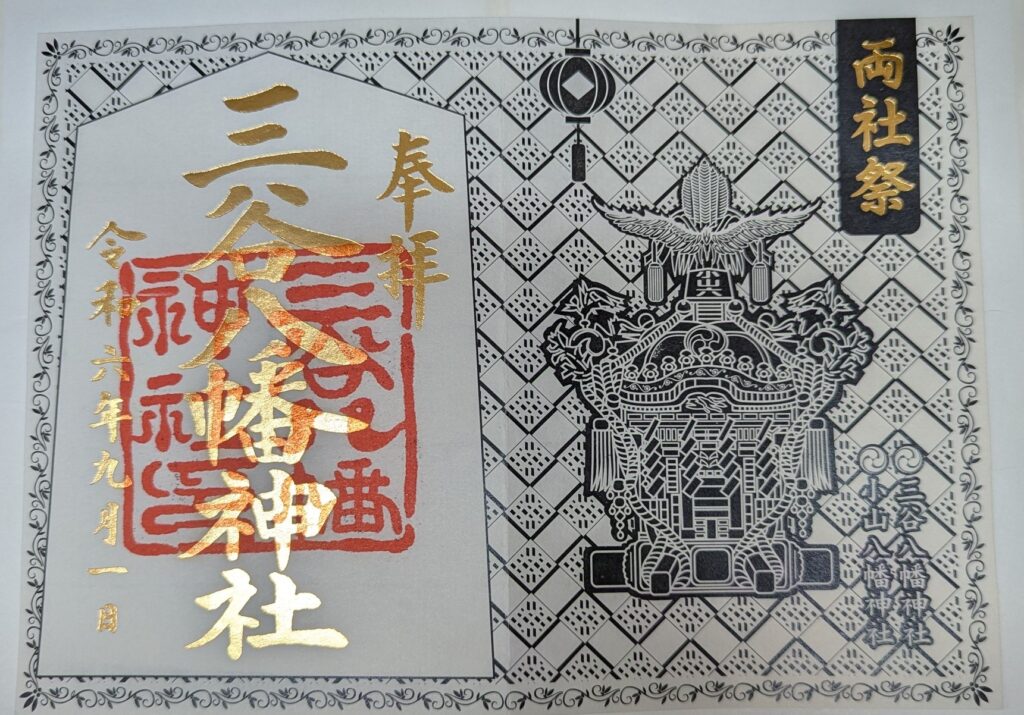 両社祭
三谷八幡神社
小山八幡神社
奉拝
三谷八幡神社
令和六年九月一日